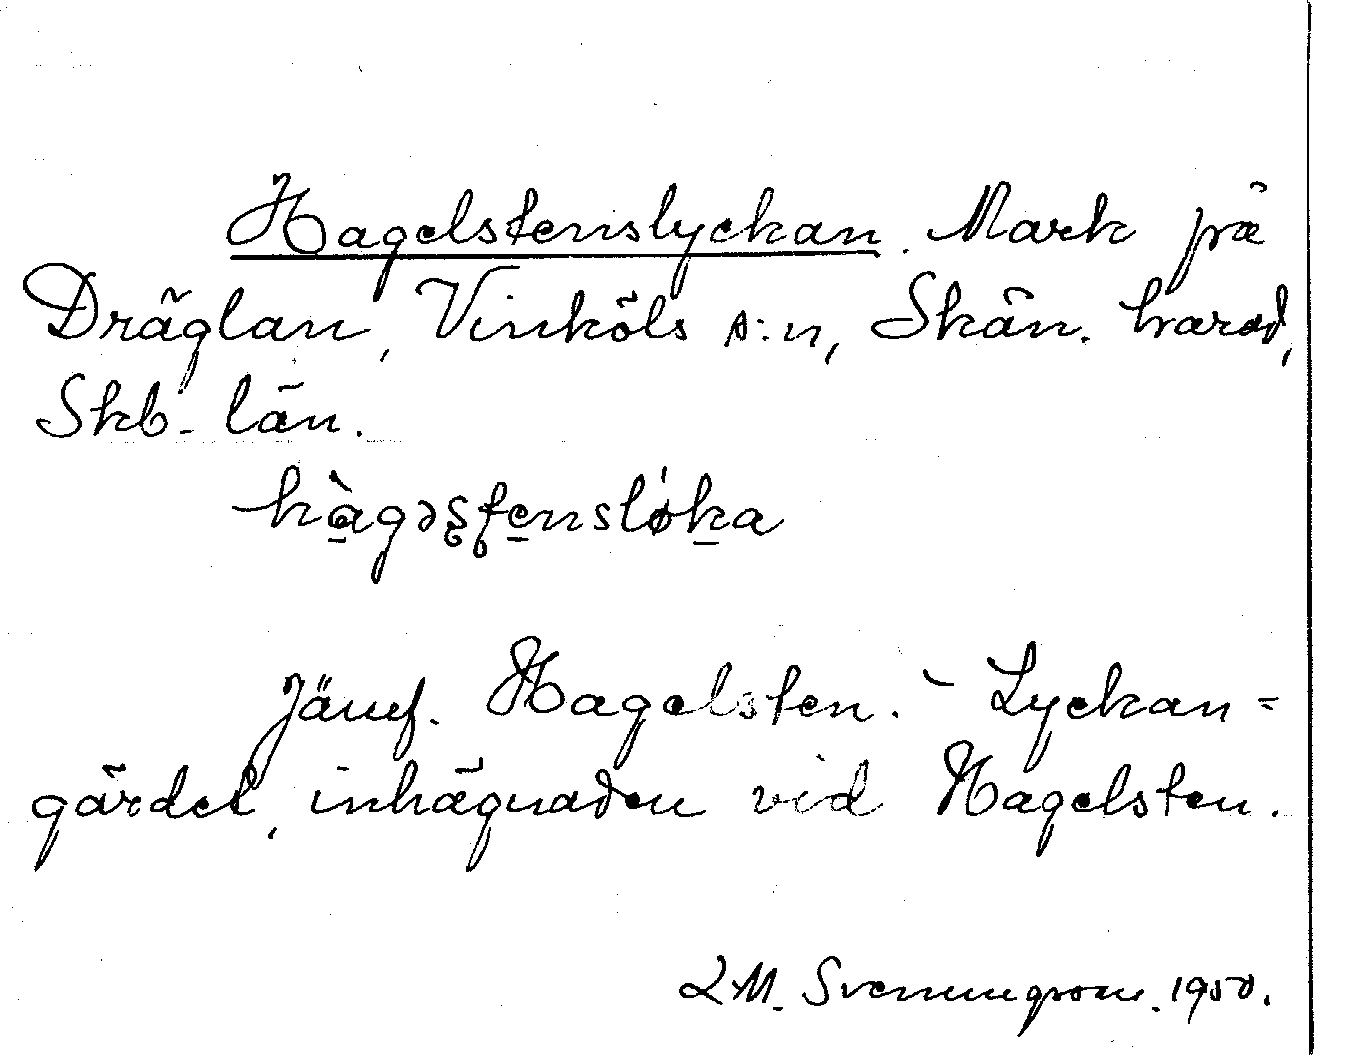 Hagelstenslyckan. Mark på
Dräglan, Vinköls s:n, Skån. härad,
Skb. län.
hàgəsstensløka
Jämf. Hagelsten. - Lyckan =
gärdet, inhägnaden vid Hagelsten.
L.M. Svenungsson. 1950.